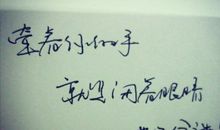 牵着你的手
就是闭着眼睛